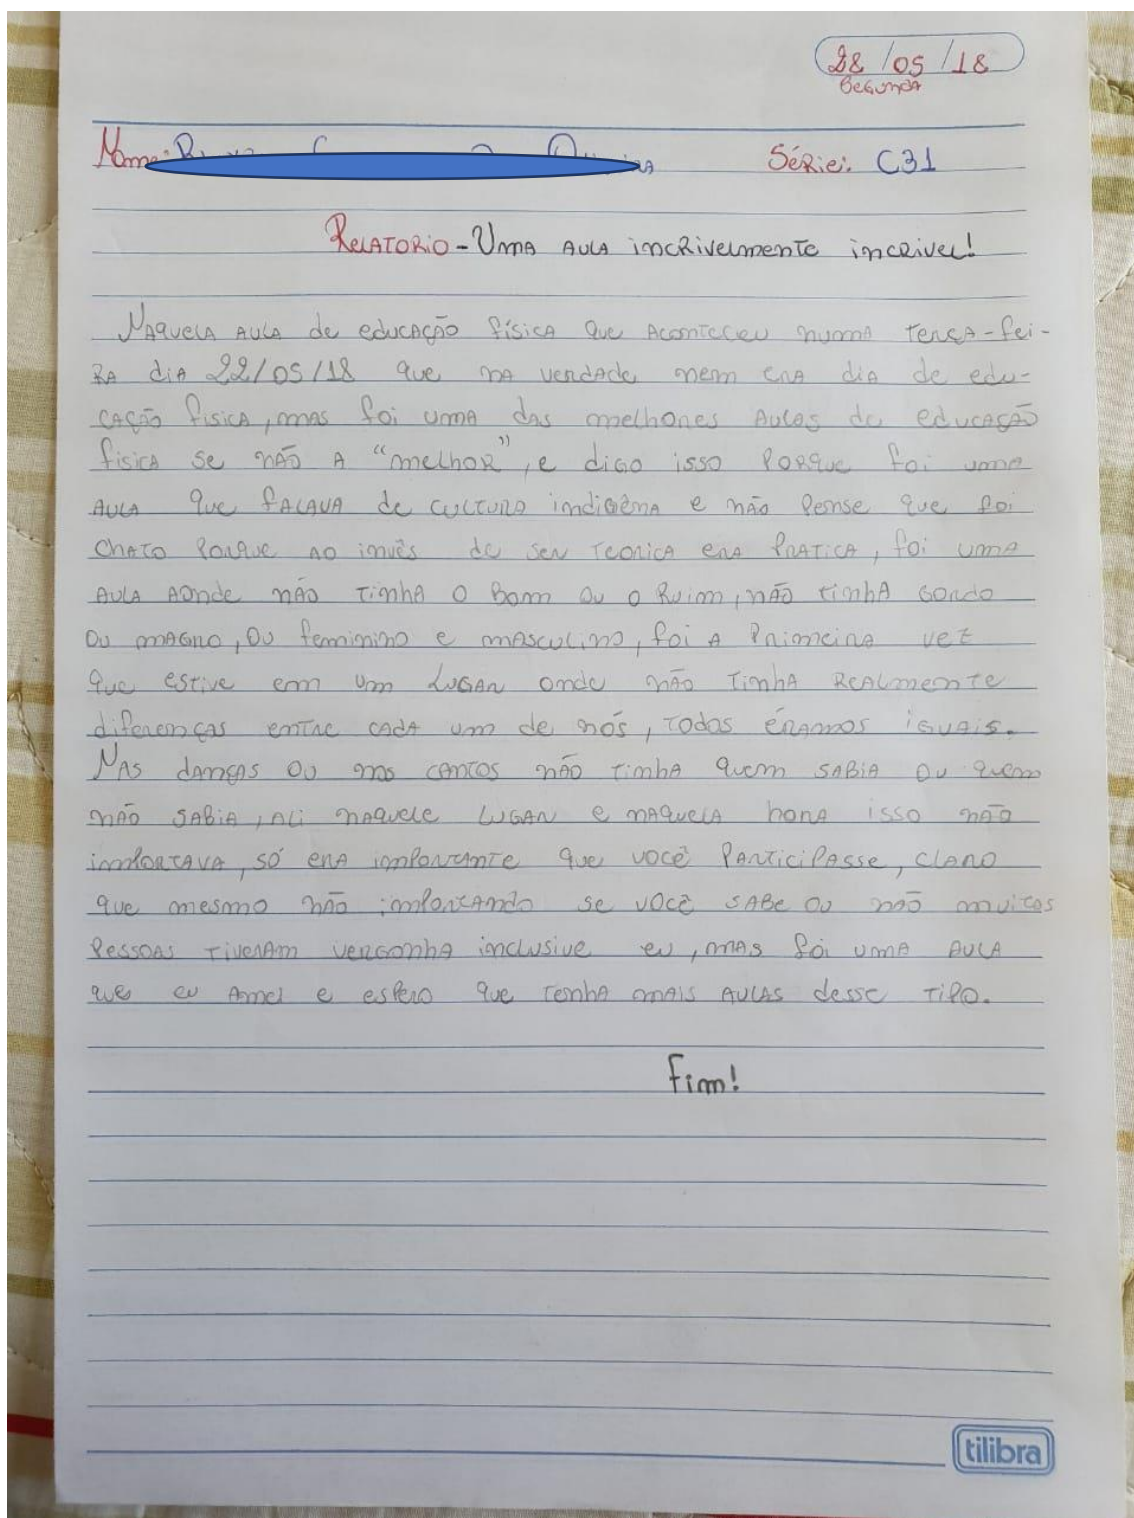 28/05/18
Segunda
Nome: Série: C31
Relatorio - Uma aula incrivelmente incrivel!
Naquela aula de educação física que aconteceu numa terça-fei-
ra dia 22/05/18 que na verdade nem era dia de edu-
cação fisica, mas foi uma das melhores aulas de educação
fisica se não a "melhor", e digo isso porque foi uma
aula que falava de cultura indigêna e não pense que foi
chato porque ao invês de ser teorica era pratica, foi uma
aula aonde não tinha o bom ou o ruim, não tinha gordo
ou magro, ou feminino e masculino, foi a primeira vez
que estive em um lugar onde não tinha realmente
diferenças entre cada um de nós, todos éramos iguais.
Nas danças ou nos cantos não tinha quem sabia ou quem
não sabia, ali naquele lugar e naquela hora isso não
importava, só era importante que você participasse, claro
que mesmo não importando se você sabe ou não muitas
pessoas tiveram vergonha inclusive eu, mas foi uma aula
que eu amei e espero que tenha mais aulas desse tipo.
Fim!
tilibra